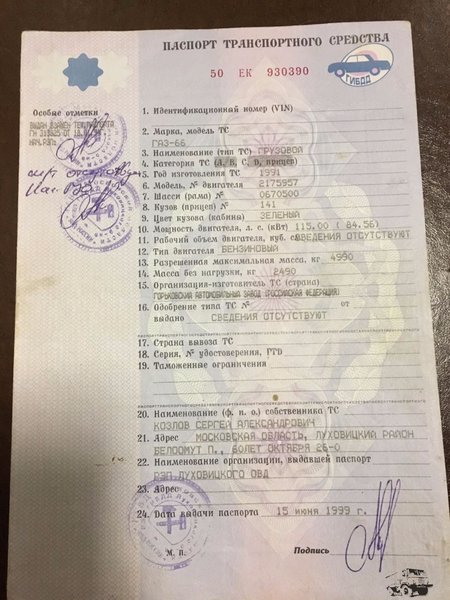 ПАСПОРТ ТРАНСПОРТНОГО СРЕДСТВА
50 ЕК 930390
ГИБДД
Особые отметки
ВЫДАН ВЗАМЕН ТЕХ.ТАЛОНА
1. Идентификационный номер (VIN)
2. Марка, модель ТС
ГАЗ-66
3. Наименование (тип ТС) ГРУЗОВОЙ
4. Категория ТС (А, В, С, D, прицеп)
5. Год изготовления ТС 1991
6. Модель, № двигателя 2175957
7. Шасси (рама) № 0670500
8. Кузов (прицеп) № 141
9. Цвет кузова (кабины) ЗЕЛЕНЫЙ
10. Мощность двигателя, л. с. (кВт) 115.00 ( 84.56)
11. Рабочий объем двигателя, куб. см СВЕДЕНИЯ ОТСУТСТВУЮТ
12. Тип двигателя БЕНЗИНОВЫЙ
13. Разрешенная максимальная масса, кг 4990
14. Масса без нагрузки, кг 2490
15. Организация-изготовитель ТС (страна)
ГОРЬКОВСКИЙ АВТОМОБИЛЬНЫЙ ЗАВОД (РОССИЙСКАЯ ФЕДЕРАЦИЯ)
16. Одобрение типа ТС № от
выдано СВЕДЕНИЯ ОТСУТСТВУЮТ
17. Страна вывоза ТС
18. Серия, № удостоверения, ГТД
19. Таможенные ограничения
20. Наименование (ф. и. о.) собственника ТС
КОЗЛОВ СЕРГЕЙ АЛЕКСАНДРОВИЧ
21. Адрес МОСКОВСКАЯ ОБЛАСТЬ, ЛУХОВИЦКИЙ РАЙОН
БЕЛООМУТ П., 60ЛЕТ ОКТЯБРЯ 26-0
22. Наименование организации, выдавшей паспорт
РЭП ЛУХОВИЦКОГО ОВД
23. Адрес
24. Дата выдачи паспорта 15 июня 1999 г.
М. П. Подпись